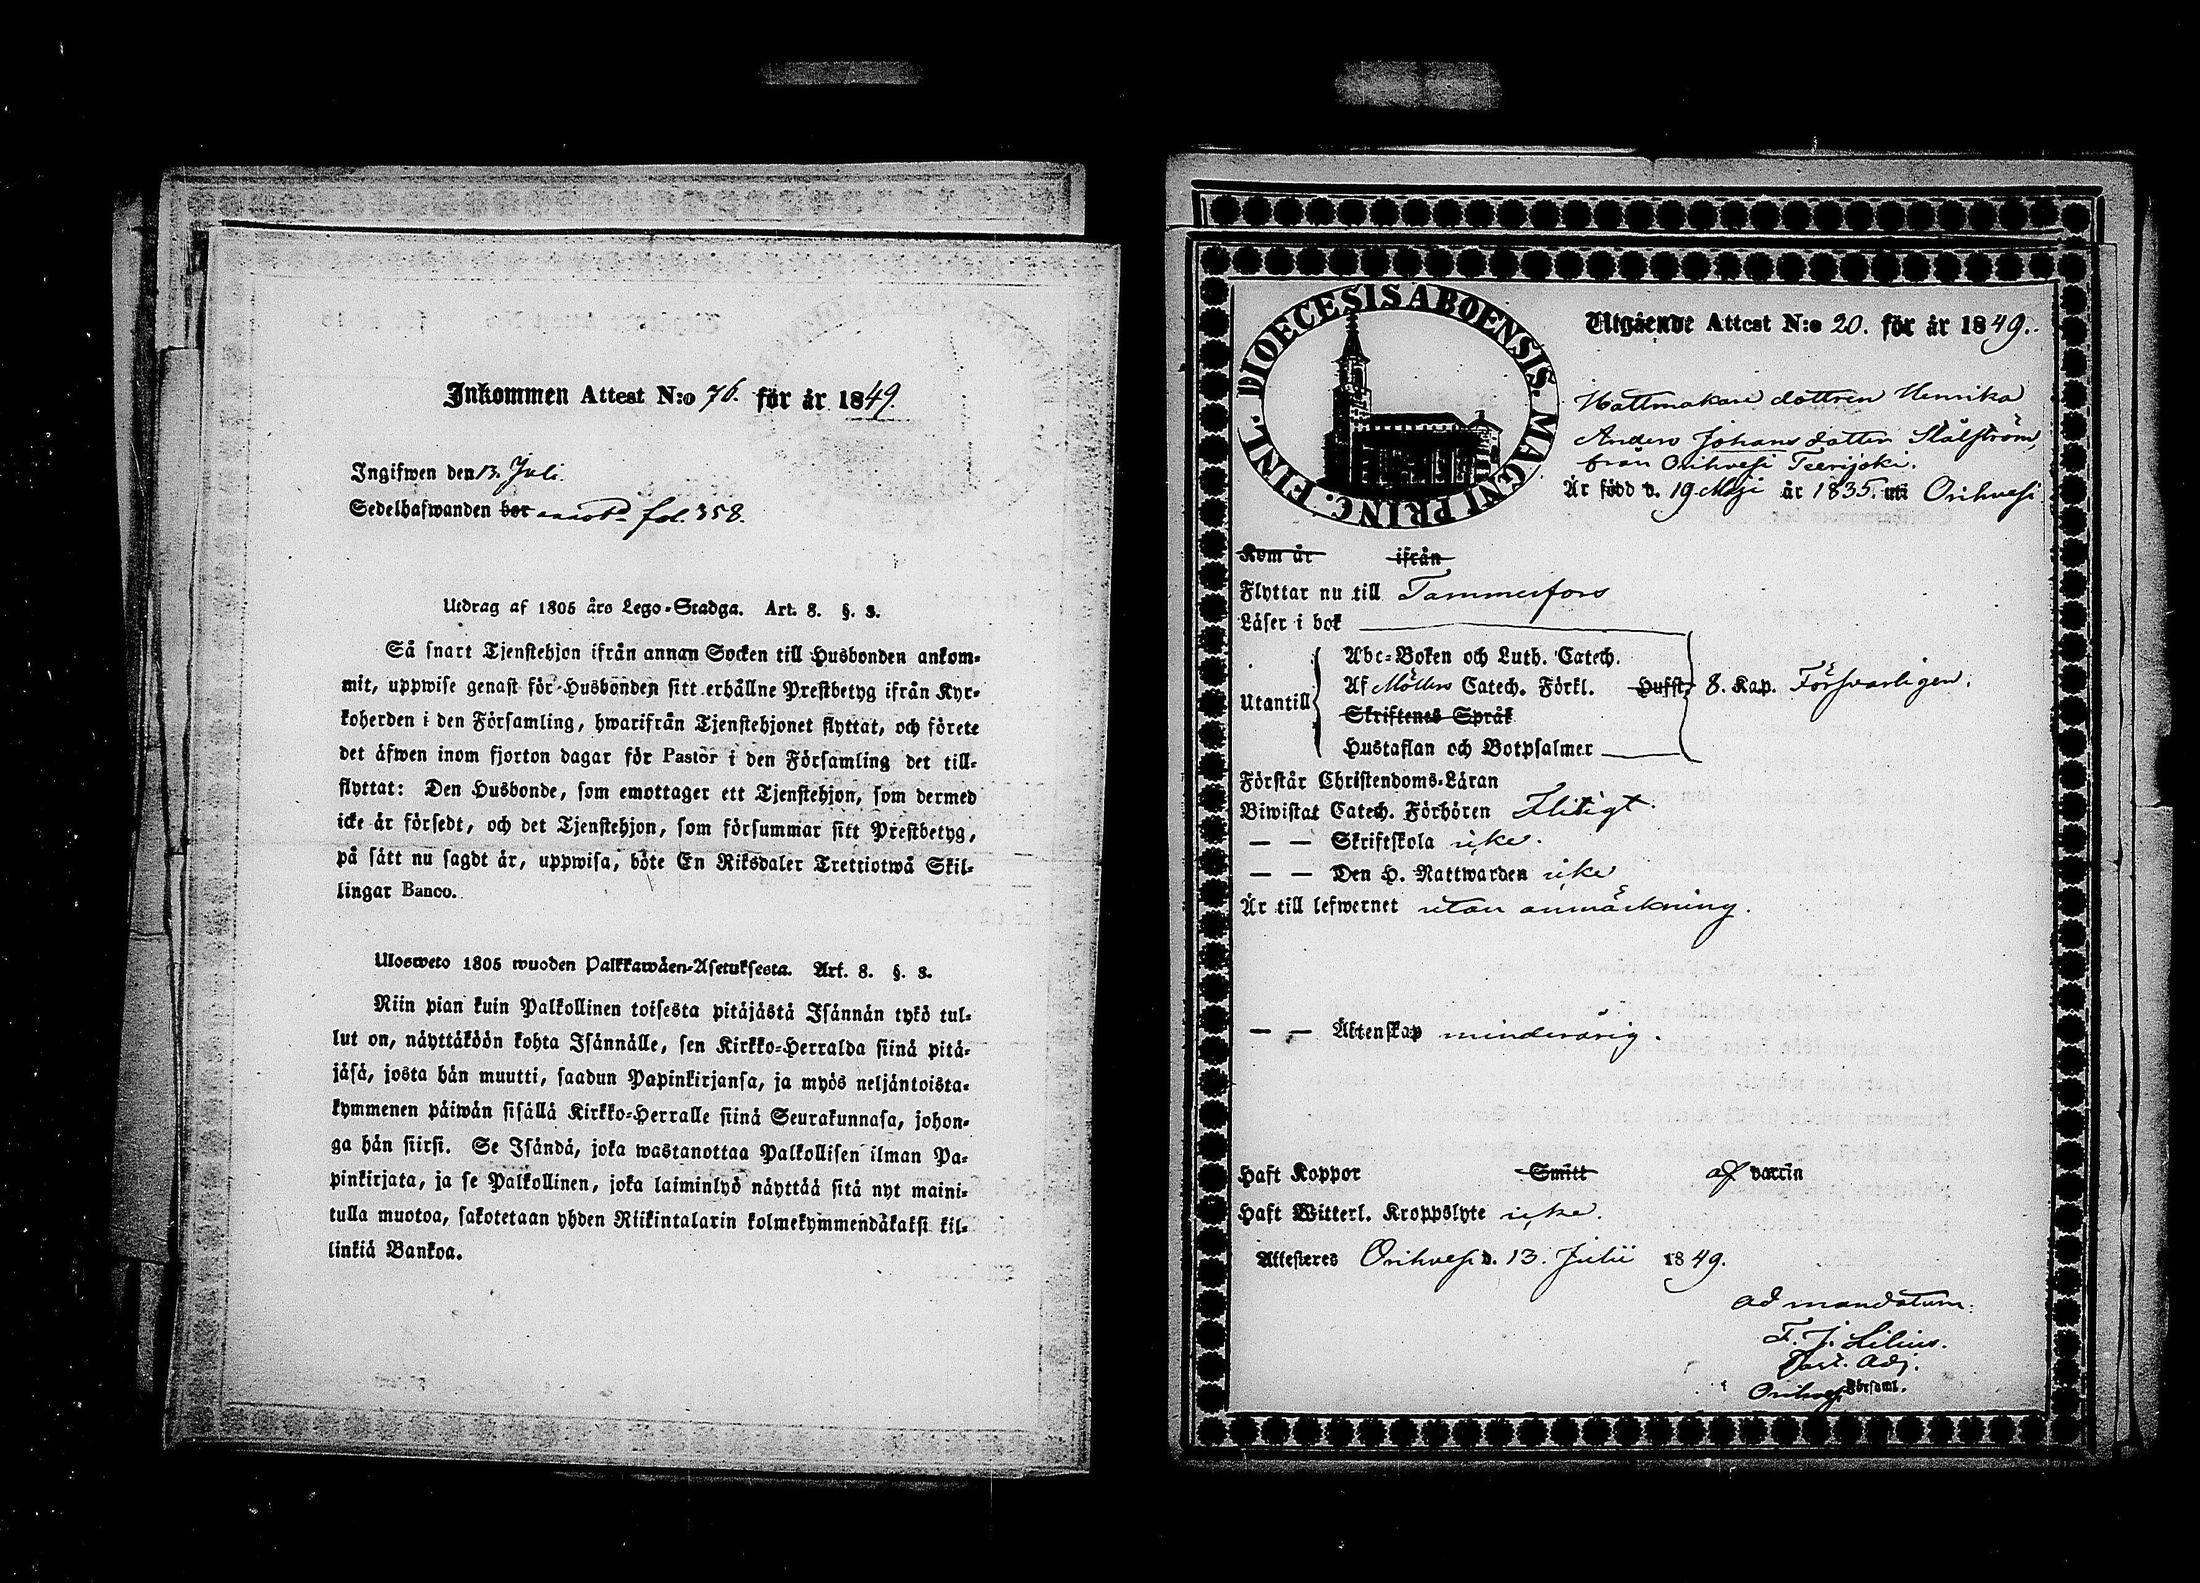 Inkommen Attest N:o 76. för år 1849.
Ingifwen den 13. Juli.
Sedelhafwanden bor fol. 358.
Utdrag af 1805 års Lego-Stadga. Art. 8. §. 3.
Så snart Tjenstehjon ifrån annan Socken till Husbonden ankom-
mit, uppwise genast för Husbonden sitt erhållne Prestbetyg ifrån Kyr-
koherden i den Församling, hwarifrån Tjenstehjonet flyttat, och förete
det äfwen inom fjorton dagar för Pastor i den Församling det till-
flyttat: Den Husbonde, som emottager ett Tjenstehjon, som dermed
icke är försedt, och det Tjenstehjon, som försummar sitt Prestbetyg,
på sätt nu sagdt är, uppwisa, böte En Riksdaler Trettiotwå Skil-
lingar Banco.
Ulosweto 1805 wuoden Palkkawäen-Asetuksesta. Art. 8. §. 3.
Niin pian kuin Palkollinen toisesta pitäjästä Isännän tykö tul-
lut on, näyttäköön kohta Isännälle, sen Kirkko-Herralda siinä pitä-
jäsä, josta hän muutti, saadun Papinkirjansa, ja myös neljäntoista-
kymmenen päiwän sisällä Kirkko-Herralle siinä Seurakunnasa, johon-
ga hän siirsi. Se Isändä, joka wastanottaa Palkollisen ilman Pa-
pinkirjata, ja se Palkollinen, joka laiminlyö näyttää sitä nyt maini-
tulla muotoa, sakotetaan yhden Riikintalarin kolmekymmendäkaksi kil-
linkiä Bankoa.
DIOECESIS ABOENSIS. MAGNI PRINC. FINL.
Utgående Attest N:o 20. för år 1849.
Hattmakare dottren Henrika
Anders Johans dotter Stålström,
från Orihvesi Teerijoki.
Är född d. 19 Maji år 1835. uti Orihvesi
Kom år ifrån
Flyttar nu till Tammerfors
Läser i bok
Utantill
Abc-Boken och Luth. Catech.
Af Möllers Catech. Förkl. Hufst. 8. Kap. Försvarligen.
Skriftenes Språk
Hustaflan och Botpsalmer
Förstår Christendoms-Läran
Biwistat Catech. Förhören Flitigt.
— — Skriftskola icke.
— — Den H. Nattwarden icke
Är till lefwernet utan anmärkning.
— — Äktenskap minderårig.
Haft Koppor Smitt af vaccin
Haft Witterl. Kroppslyte icke.
Attesteres Orihvesi d. 13. Julii 1849.
Ad mandatum:
F. J. Lilius.
Past. Adj.
Orihvesi Församl.